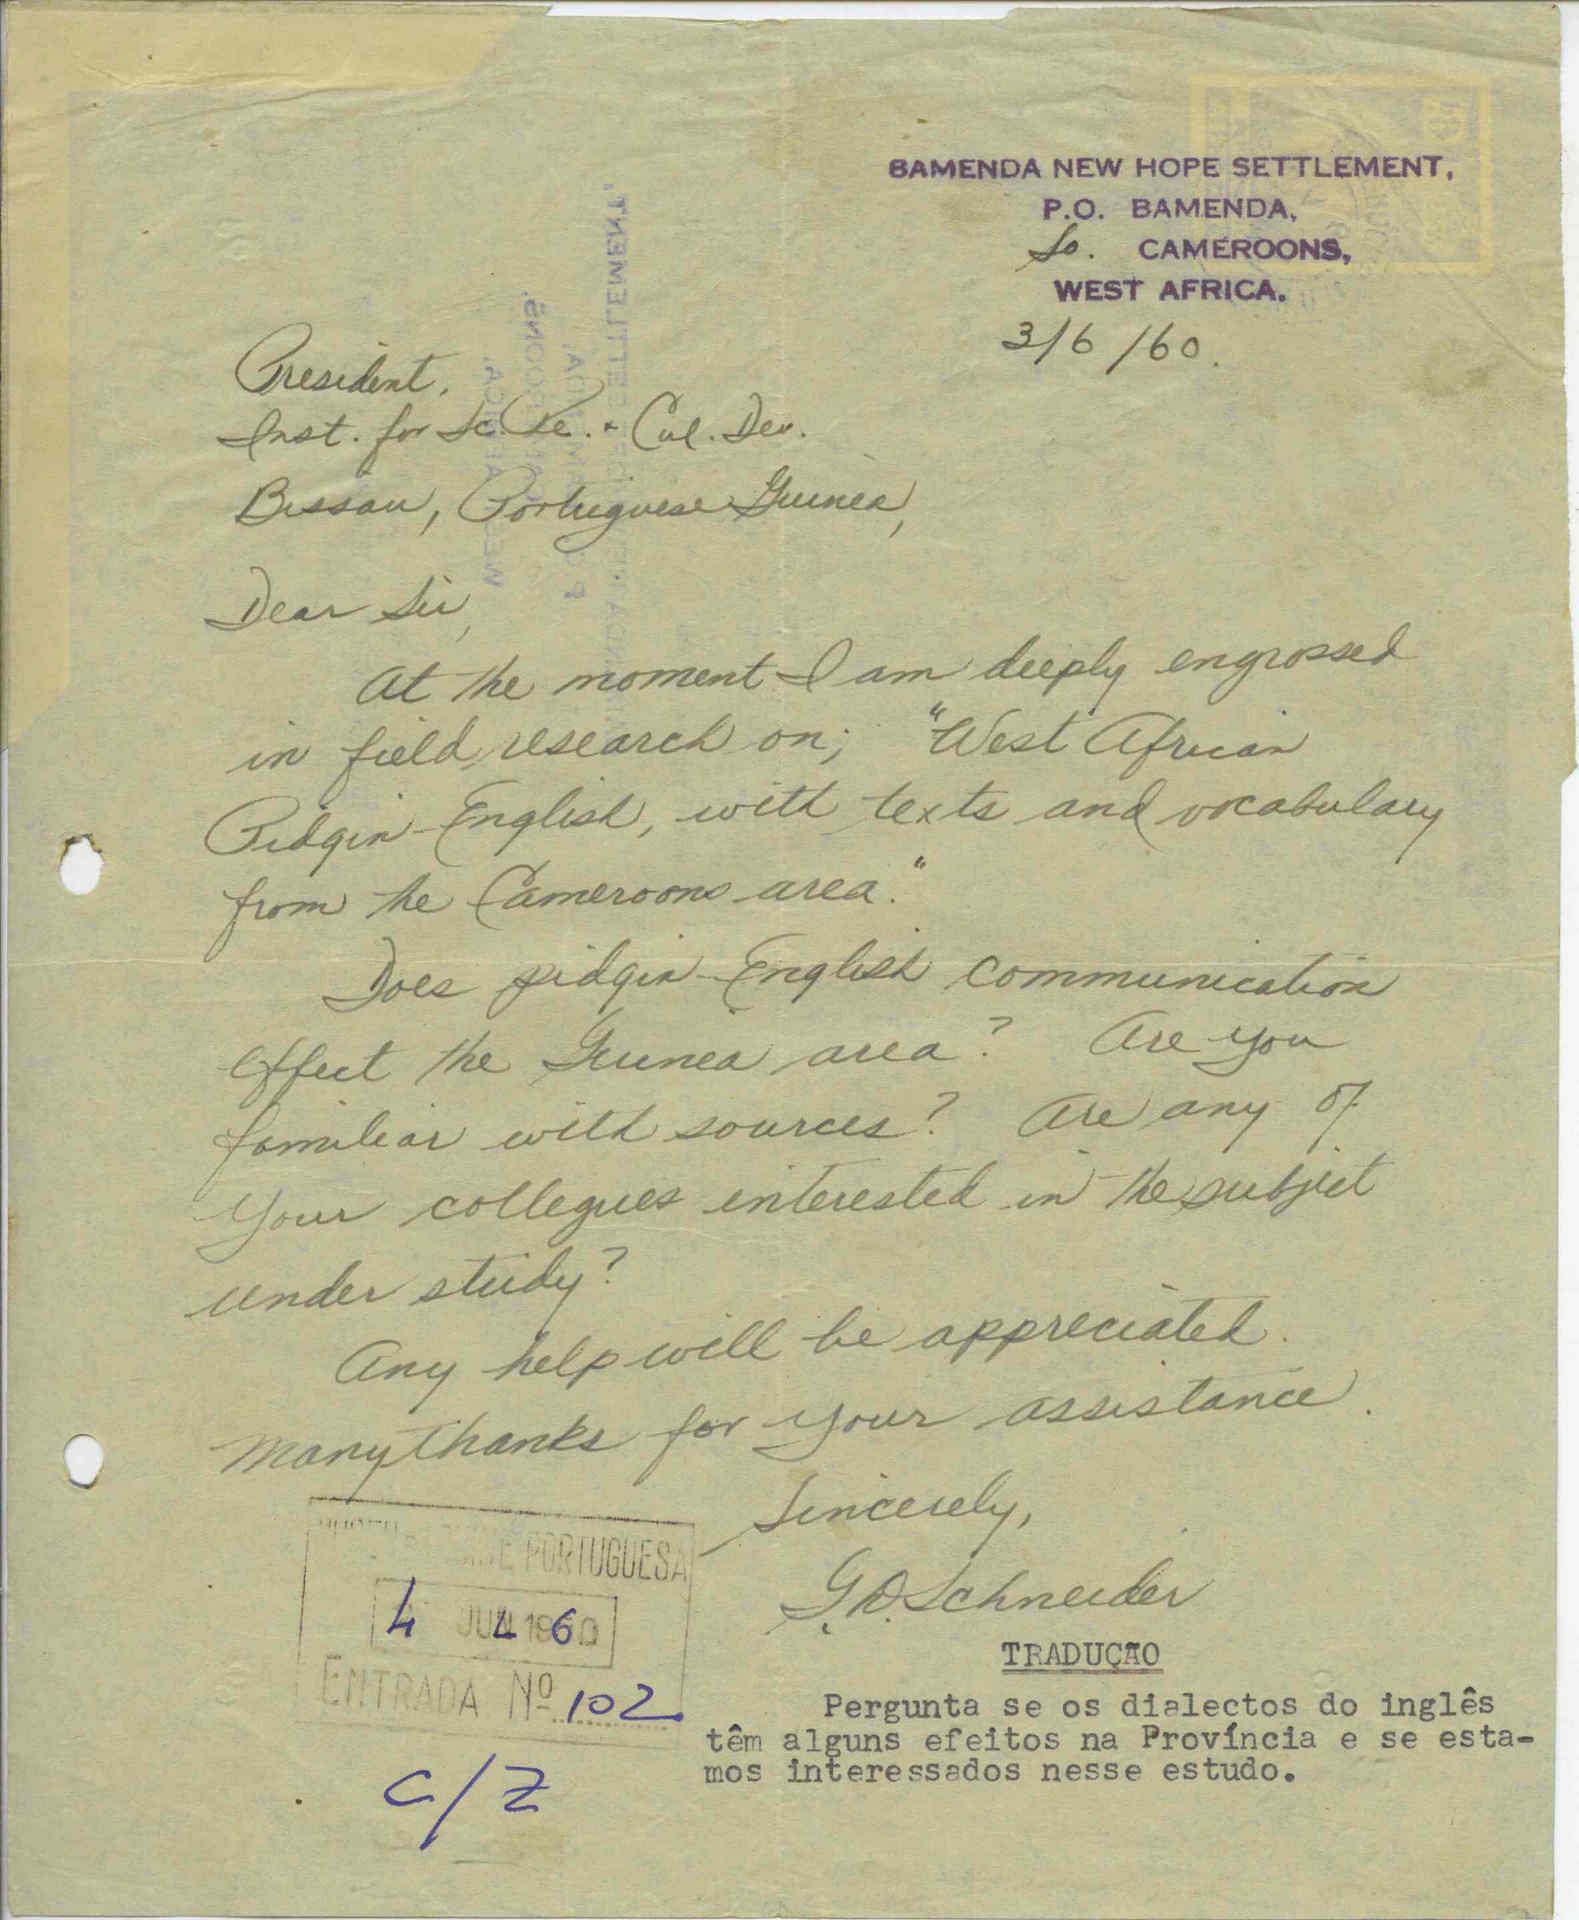 BAMENDA NEW HOPE SETTLEMENT,
P.O. BAMENDA,
So. CAMEROONS,
WEST AFRICA.
3/6/60.
President.
Inst. for Sc. Re. & Cul. Dev.
Bissau, Portuguese Guinea,
Dear Sir,
At the moment I am deeply engrossed
in field research on; "West African
Pidgin-English, with texts and vocabulary
from the Cameroons area."
Does pidgin-English communication
effect the Guinea area? Are you
familiar with sources? Are any of
your collegues interested in the subject
under study?
Any help will be appreciated.
Many thanks for your assistance.
Sincerely,
G.D. Schneider
PORTUGUESA
4 JUN 1960
ENTRADA Nº 102
C/Z
TRADUÇÃO
Pergunta se os dialectos do inglês
têm alguns efeitos na Província e se esta-
mos interessados nesse estudo.